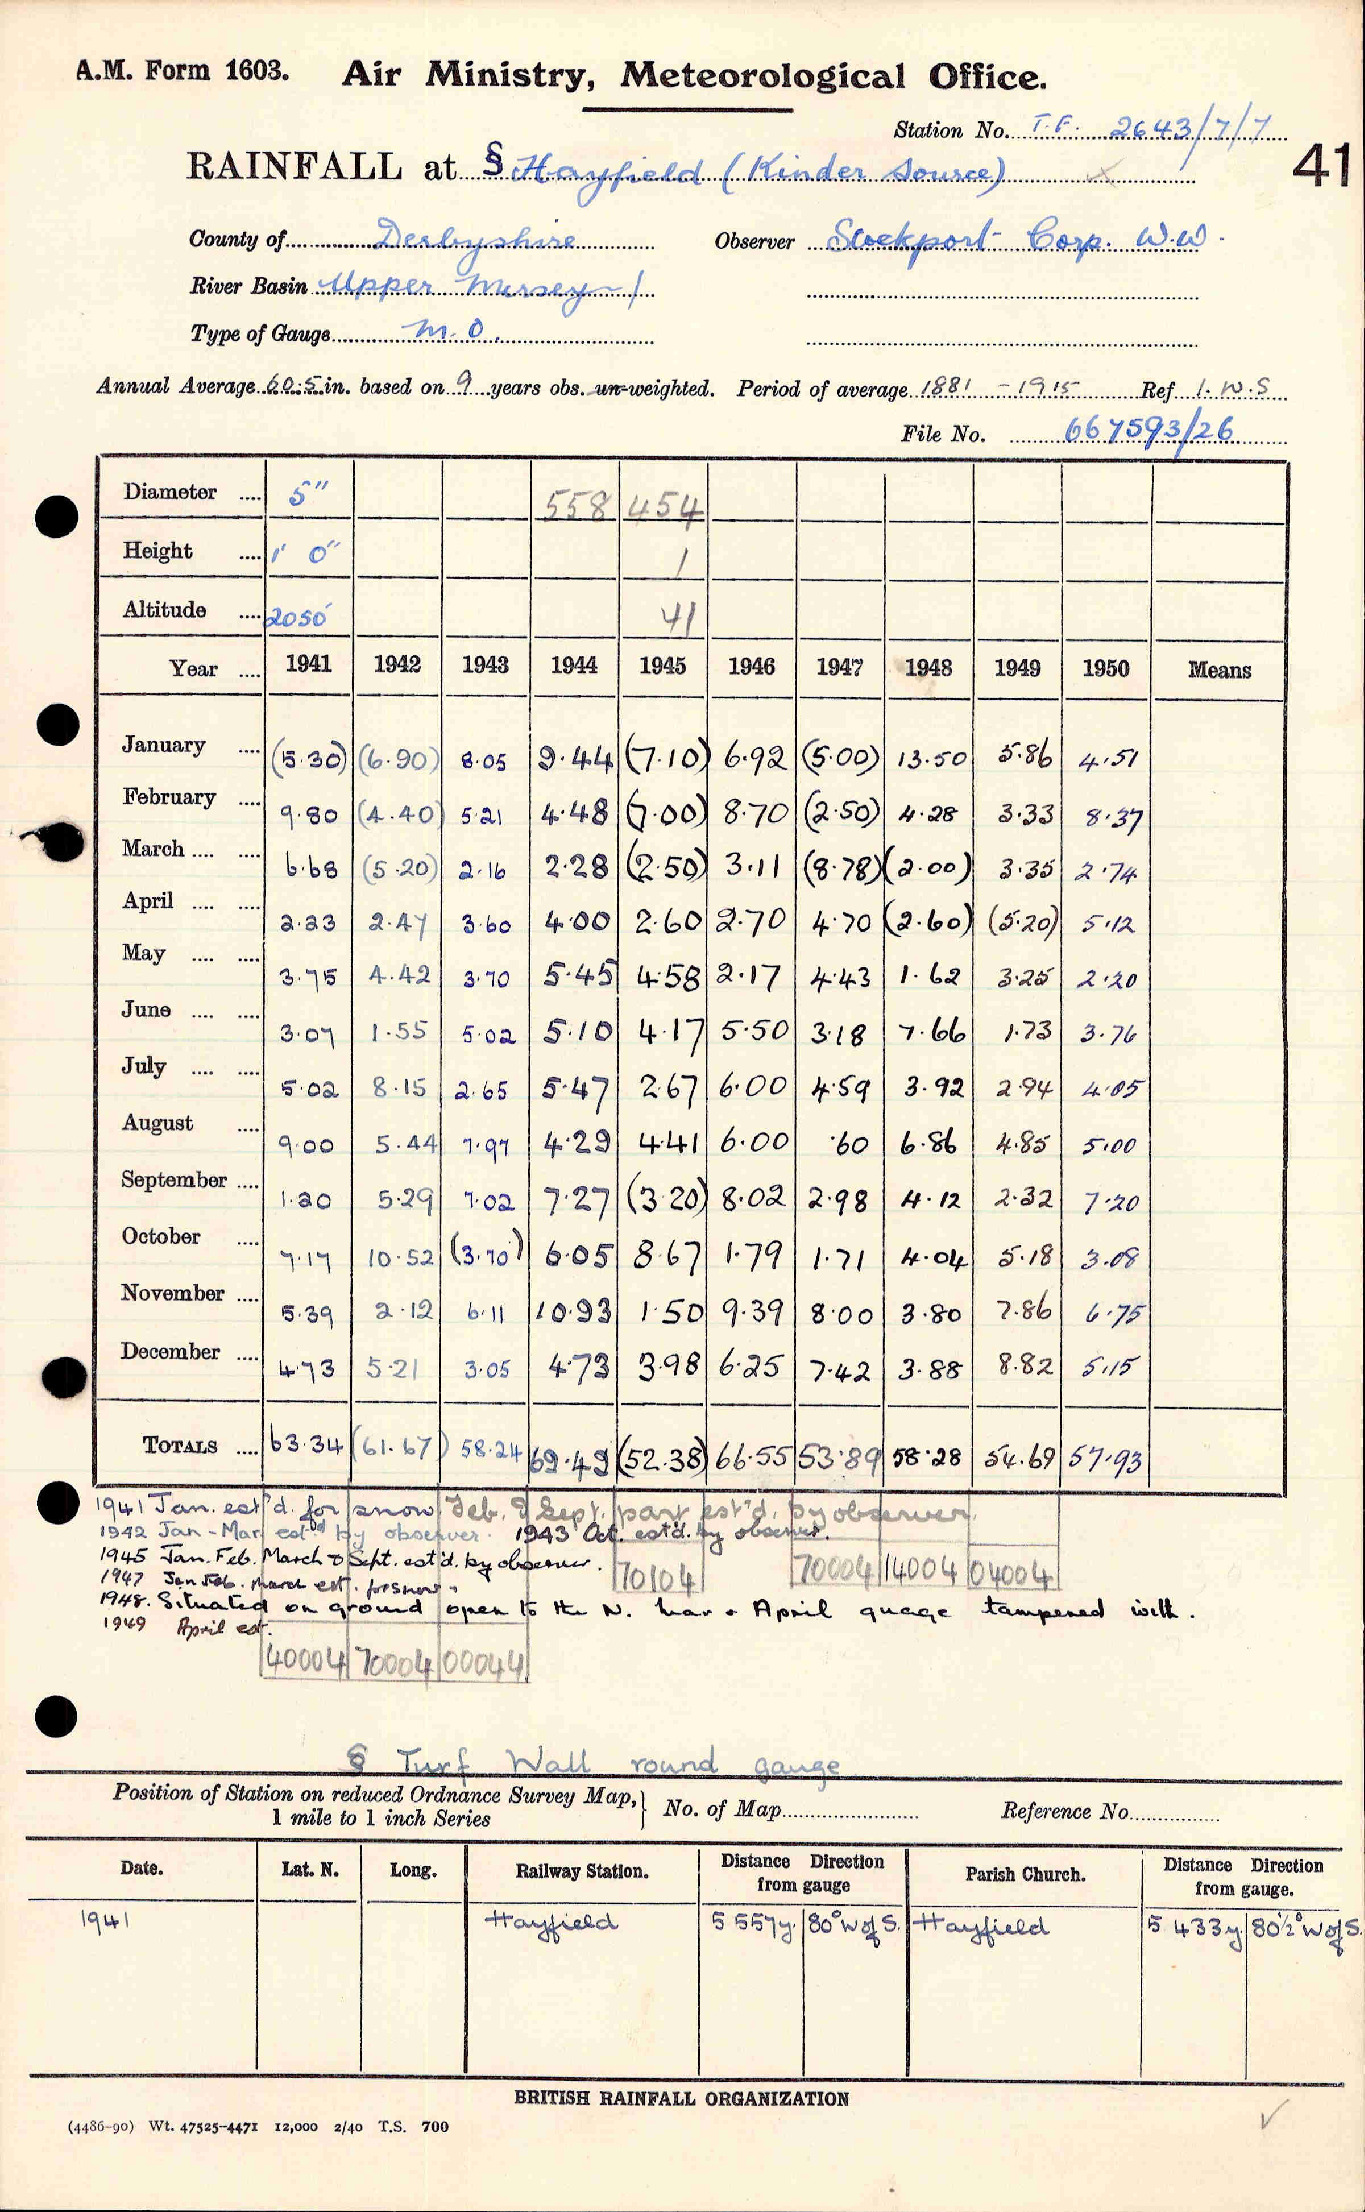 A.M. Form 1603. Air Ministry, Meteorological Office.
Station No. T.F. 2643/7/7
RAINFALL at § Hayfield (Kinder Source)
41
County of Derbyshire Observer Stockport Corp. W.W.
River Basin Upper Mersey /
Type of Gauge M.O.
Annual Average 60.5 in. based on 9 years obs. un-weighted. Period of average 1881 - 1915 Ref I.W.S
File No. 667593/26
Diameter .... 5" 558 454
Height .... 1' 0" 1
Altitude .... 2050' 41
Year .... 1941 1942 1943 1944 1945 1946 1947 1948 1949 1950 Means
January .... (5.30) (6.90) 8.05 9.44 (7.10) 6.92 (5.00) 13.50 5.86 4.51
February .... 9.80 (4.40) 5.21 4.48 (7.00) 8.70 (2.50) 4.28 3.33 8.37
March .... .... 6.68 (5.20) 2.16 2.28 (2.50) 3.11 (8.78) (2.00) 3.35 2.74
April .... .... 2.23 2.47 3.60 4.00 2.60 2.70 4.70 (2.60) (5.20) 5.12
May .... .... 3.75 4.42 3.70 5.45 4.58 2.17 4.43 1.62 3.25 2.20
June .... .... 3.07 1.55 5.02 5.10 4.17 5.50 3.18 7.66 1.73 3.76
July .... .... 5.02 8.15 2.65 5.47 2.67 6.00 4.59 3.92 2.94 4.05
August .... 9.00 5.44 7.97 4.29 4.41 6.00 .60 6.86 4.85 5.00
September .... 1.20 5.29 7.02 7.27 (3.20) 8.02 2.98 4.12 2.32 7.20
October .... 7.17 10.52 (3.70) 6.05 8.67 1.79 1.71 4.04 5.18 3.08
November .... 5.39 2.12 6.11 10.93 1.50 9.39 8.00 3.80 7.86 6.75
December .... 4.73 5.21 3.05 4.73 3.98 6.25 7.42 3.88 8.82 5.15
TOTALS .... 63.34 (61.67) 58.24 69.49 (52.38) 66.55 53.89 58.28 54.69 57.93
1941 Jan. est'd. for snow, Feb. & Sept. part est'd. by observer.
1942 Jan - Mar. est'd by observer. 1943 Oct. est'd. by observer.
1945 Jan. Feb. March & Sept. est'd. by observer.
70104 70004 14004 04004
1947 Jan Feb. March est. for snow.
1948. Situated on ground open to the N. Mar & April guage tampered with.
1949 April est.
40004 70004 00044
§ Turf Wall round gauge
Position of Station on reduced Ordnance Survey Map, 1 mile to 1 inch Series } No. of Map Reference No.
Date. Lat. N. Long. Railway Station. Distance Direction from gauge Parish Church. Distance Direction from gauge.
1941 Hayfield 5 557y. 80° W of S. Hayfield 5 433y 80½° W of S.
BRITISH RAINFALL ORGANIZATION
(4486-90) Wt. 47525-4471 12,000 2/40 T.S. 700